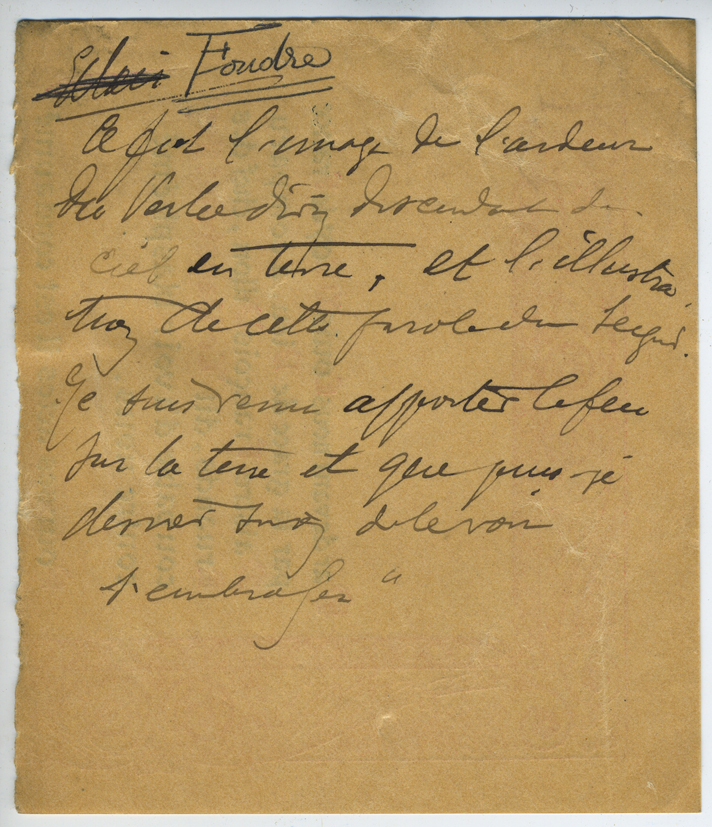 Eclair Foudre
Ce fut l'image de l'ardeur
du Verbe divin descendant du
ciel en terre, et l'illustra
tion de cette parole du Seign.
Je suis venu apporter le feu
sur la terre et que puis-je
desirer sinon de le voir
s'embraser"